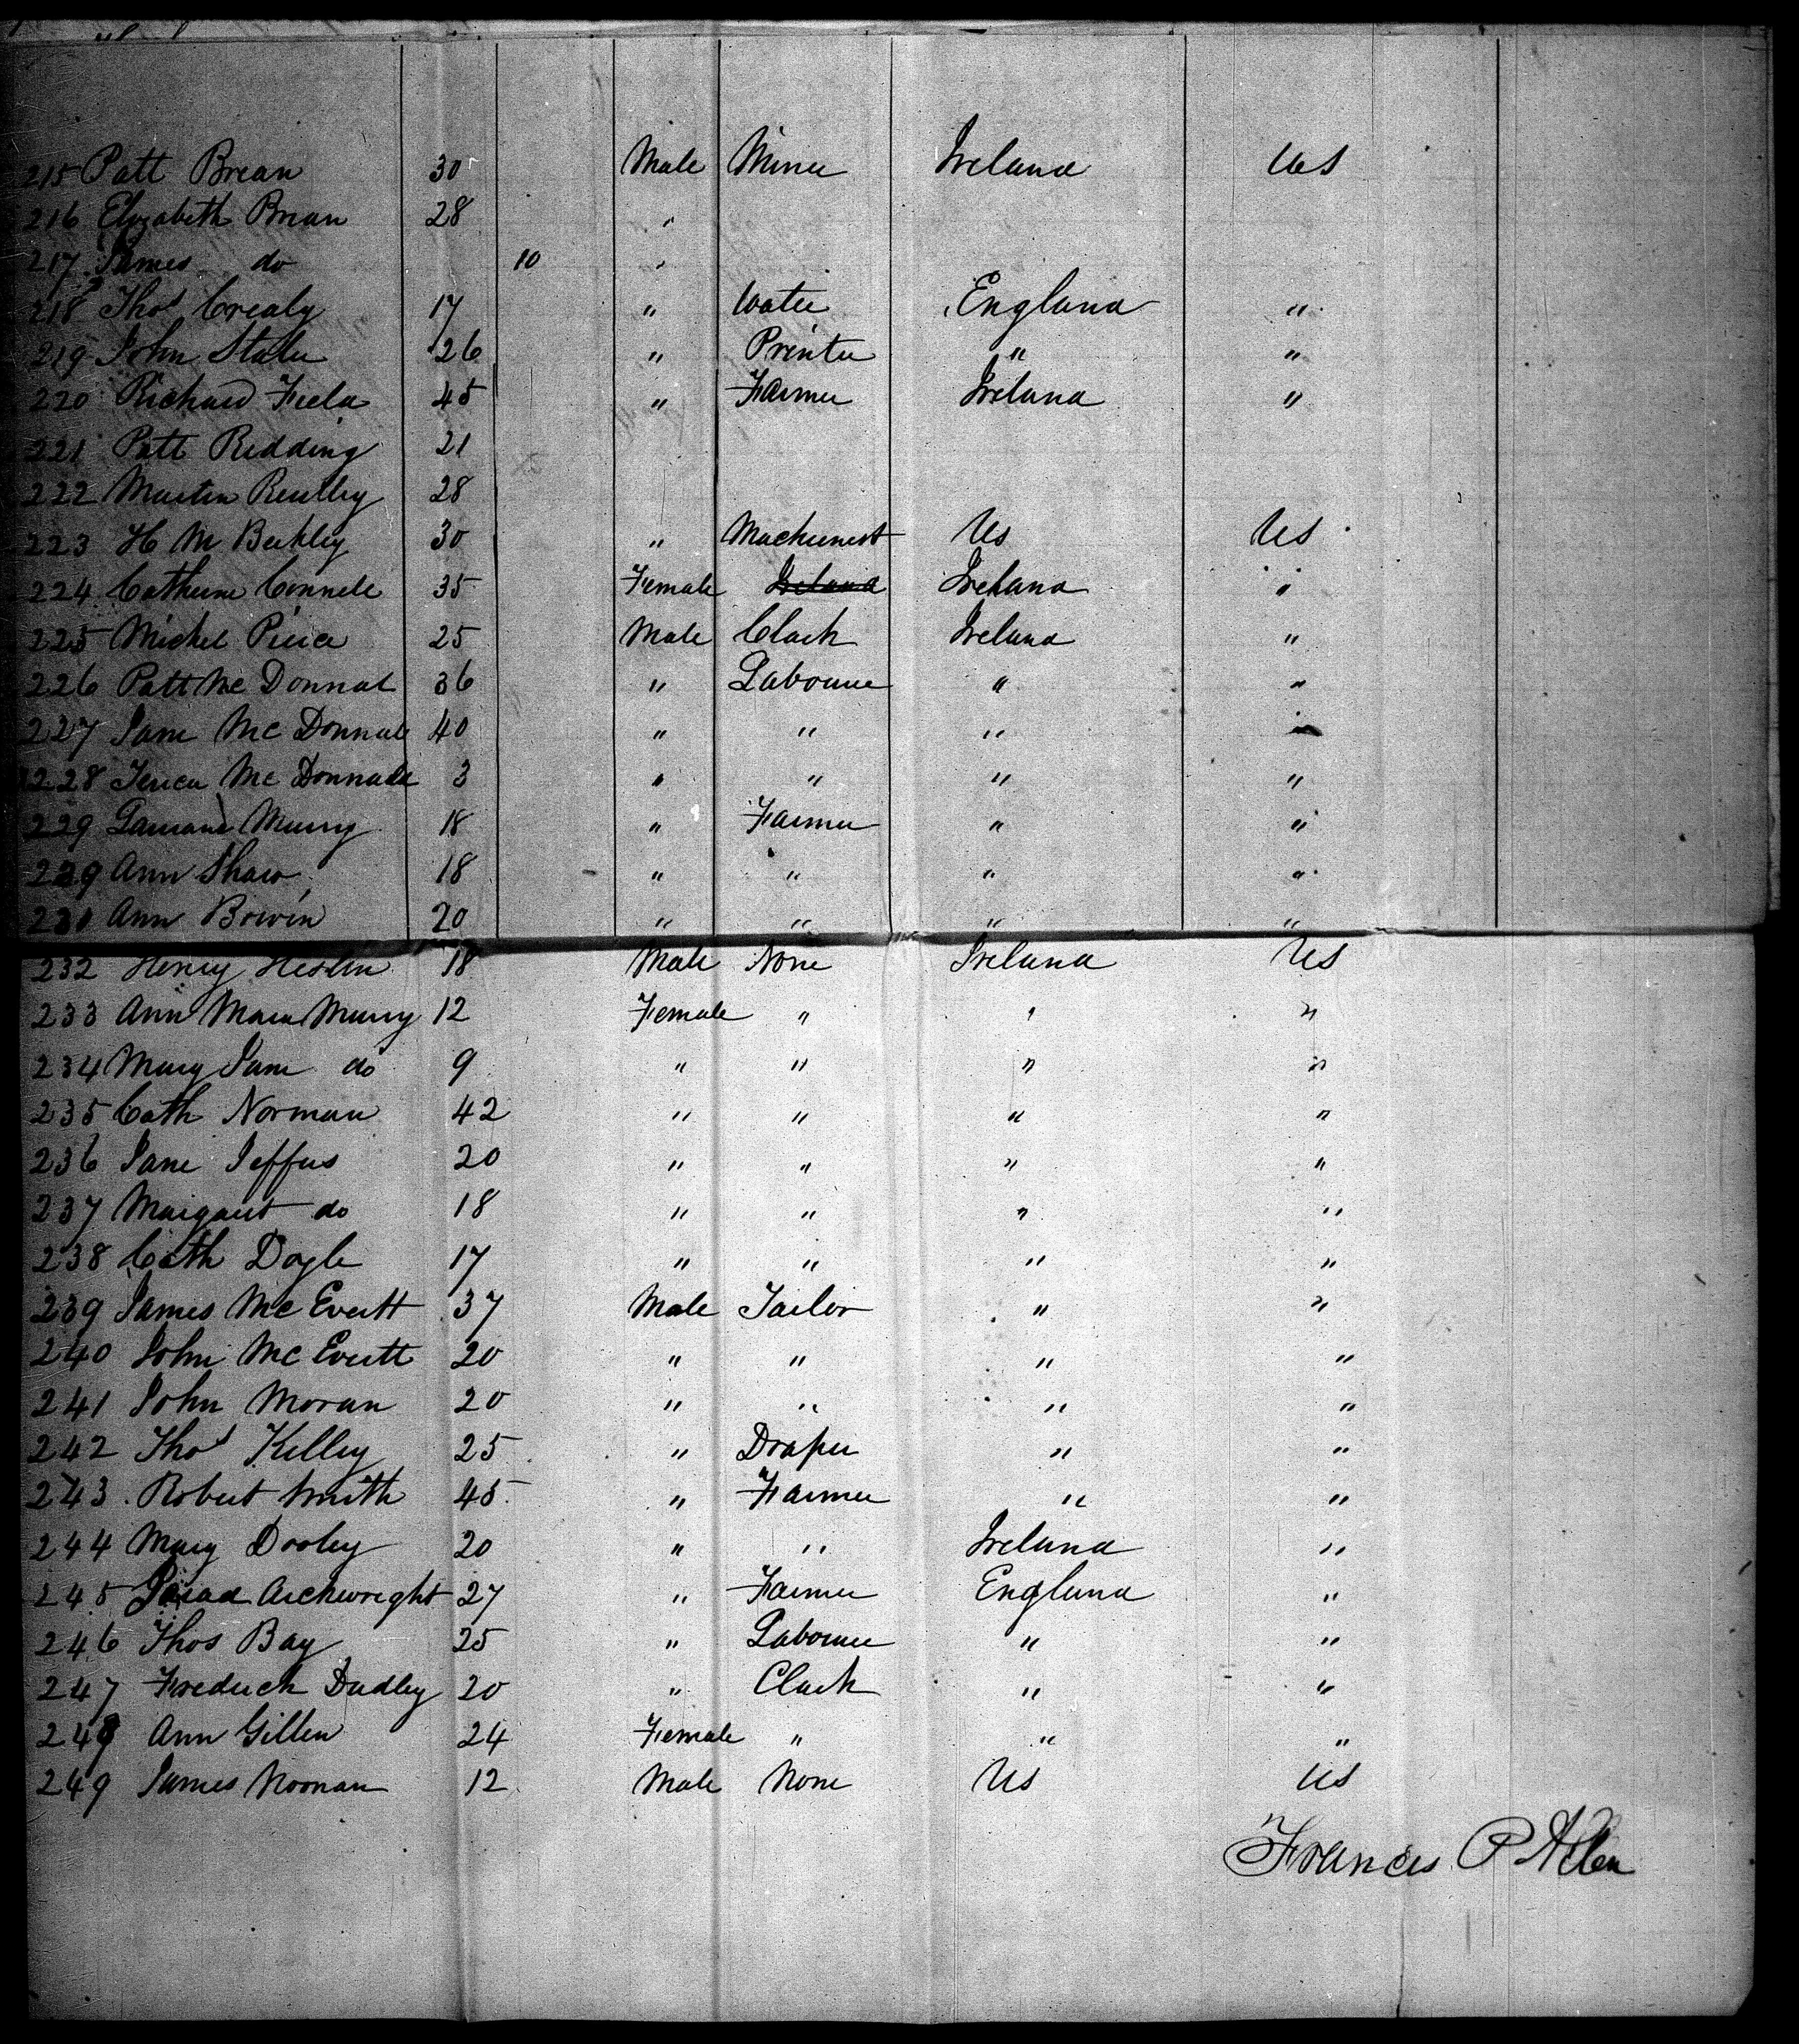 215 Patt Brean 30 Male Miner Ireland US
216 Elizabeth Brean 28 "
217 James do 10 "
218 Thos Crealy 17 " Water England "
219 John Staler 26 " Printer " "
220 Richard Field 45 " Farmer Ireland "
221 Patt Redding 21
222 Martin Reilley 28
223 H M Beekley 30 " Machienest US US
224 Catherine Connele 35 Female Ireland Ireland "
225 Michel Pierce 25 Male Clark Ireland "
226 Patt Mc Donnal 36 " Labourer " "
227 Jane Mc Donnal 40 " " " "
228 Mc Donnald 3 " " " "
229 Murry 18 " Farmer " "
229 Ann Shaw 18 " " " "
230 Ann Bowin 20 " " " "
232 Henry Heslin 18 Male None Ireland US
233 Ann Maria Murry 12 Female " " "
234 Mary Jane do 9 " " " "
235 Cath Norman 42 " " " "
236 Jane Jeffers 20 " " " "
237 Margaret do 18 " " " "
238 Cath Dogle 17 " " " "
239 James Mc Evertt 37 Male Tailor " "
240 John Mc Evertt 20 " " " "
241 John Moran 20 " " " "
242 Thos Kelley 25 " Draper " "
243 Robert Smith 45 " Farmer " "
244 Mary Dooley 20 " " Ireland "
245 Arckwright 27 " Farmer England "
246 Thos Bay 25 " Labourer " "
247 Frederick Dudley 20 " Clark " "
248 Ann Gillen 24 Female " " "
249 James Noonan 12 Male None US US
Frances P Allen